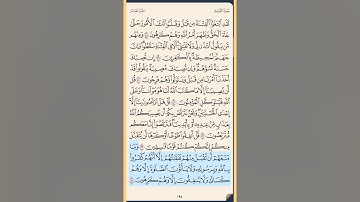 سورة التوبة الجزء العاشر
لَقَدِ ٱبْتَغَوُا۟ ٱلْفِتْنَةَ مِن قَبْلُ وَقَلَّبُوا۟ لَكَ ٱلْأُمُورَ حَتَّىٰ
جَآءَ ٱلْحَقُّ وَظَهَرَ أَمْرُ ٱللَّهِ وَهُمْ كَٰرِهُونَ ٤٨ وَمِنْهُم
مَّن يَقُولُ ٱئْذَن لِّى وَلَا تَفْتِنِّىٓ أَلَا فِى ٱلْفِتْنَةِ سَقَطُوا۟ وَإِنَّ
جَهَنَّمَ لَمُحِيطَةٌۢ بِٱلْكَٰفِرِينَ ٤٩ إِن تُصِبْكَ
حَسَنَةٌ تَسُؤْهُمْ وَإِن تُصِبْكَ مُصِيبَةٌ يَقُولُوا۟ قَدْ
أَخَذْنَآ أَمْرَنَا مِن قَبْلُ وَيَتَوَلَّوا۟ وَّهُمْ فَرِحُونَ ٥٠ قُل
لَّن يُصِيبَنَآ إِلَّا مَا كَتَبَ ٱللَّهُ لَنَا هُوَ مَوْلَىٰنَا وَعَلَى
ٱللَّهِ فَلْيَتَوَكَّلِ ٱلْمُؤْمِنُونَ ٥١ قُلْ هَلْ تَرَبَّصُونَ بِنَآ
إِلَّآ إِحْدَى ٱلْحُسْنَيَيْنِ وَنَحْنُ نَتَرَبَّصُ بِكُمْ أَن يُصِيبَكُمُ ٱللَّهُ
بِعَذَابٍ مِّنْ عِندِهِۦٓ أَوْ بِأَيْدِينَا فَتَرَبَّصُوٓا۟ إِنَّا مَعَكُم
مُّتَرَبِّصُونَ ٥٢ قُلْ أَنفِقُوا۟ طَوْعًا أَوْ كَرْهًا لَّن يُتَقَبَّلَ
مِنكُمْ إِنَّكُمْ كُنتُمْ قَوْمًا فَٰسِقِينَ ٥٣ وَمَا
مَنَعَهُمْ أَن تُقْبَلَ مِنْهُمْ نَفَقَٰتُهُمْ إِلَّآ أَنَّهُمْ كَفَرُوا۟
بِٱللَّهِ وَبِرَسُولِهِۦ وَلَا يَأْتُونَ ٱلصَّلَوٰةَ إِلَّا وَهُمْ
كُسَالَىٰ وَلَا يُنفِقُونَ إِلَّا وَهُمْ كَٰرِهُونَ ٥٤